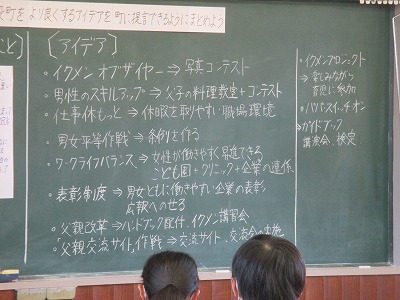 町をより良くするアイデアを町に提言できるようにまとめよう
〔アイデア〕
・イクメン オブザイヤー ⇒ 写真コンテスト
・男性のスキルアップ ⇒ 父子の料理教室＋コンテスト
・仕事休もっと ⇒ 休暇を取りやすい職場環境
・男女平等作戦 ⇒ 条例を作る
・ワークライフバランス ⇒ 女性が働きやすく昇進できる
こども園＋クリニック＋企業の連係
・表彰制度 ⇒ 男女ともに働きやすい企業の表彰
広報へのせる
・父親改革 ⇒ ハンドブック配付、イクメン講習会
・父親交流サイト作戦 ⇒ 交流サイト、交流会の実施
・イクメンプロジェクト
⇒ 楽しみながら
育児に参加
・パパスイッチオン
⇒ ガイドブック
講演会、検定